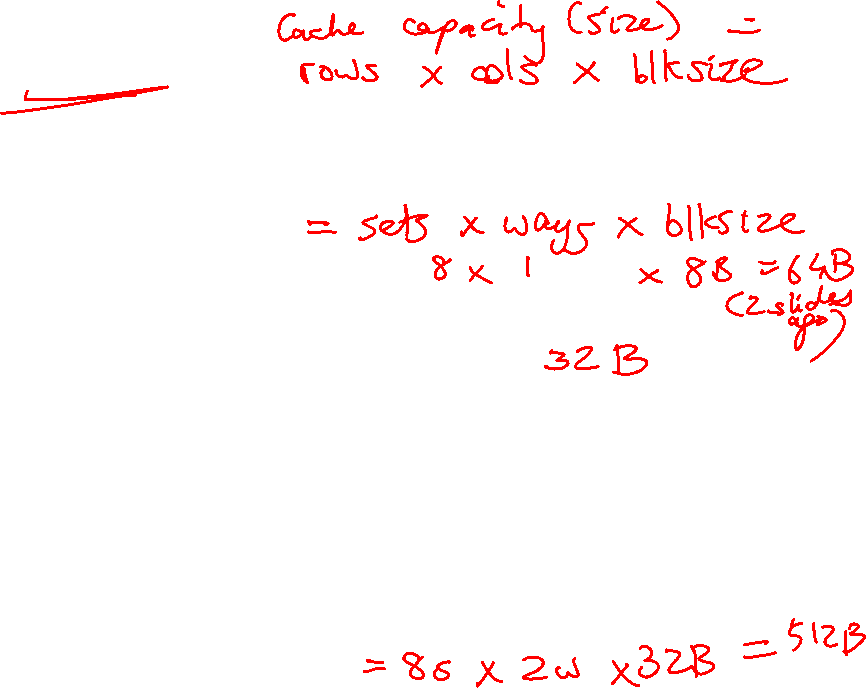 Cache capacity (size) =
rows x cols x blksize
= sets x ways x blksize
8 x 1 x 8B = 64B
(2 slides
ago)
32B
= 8s x 2w x 32B = 512B